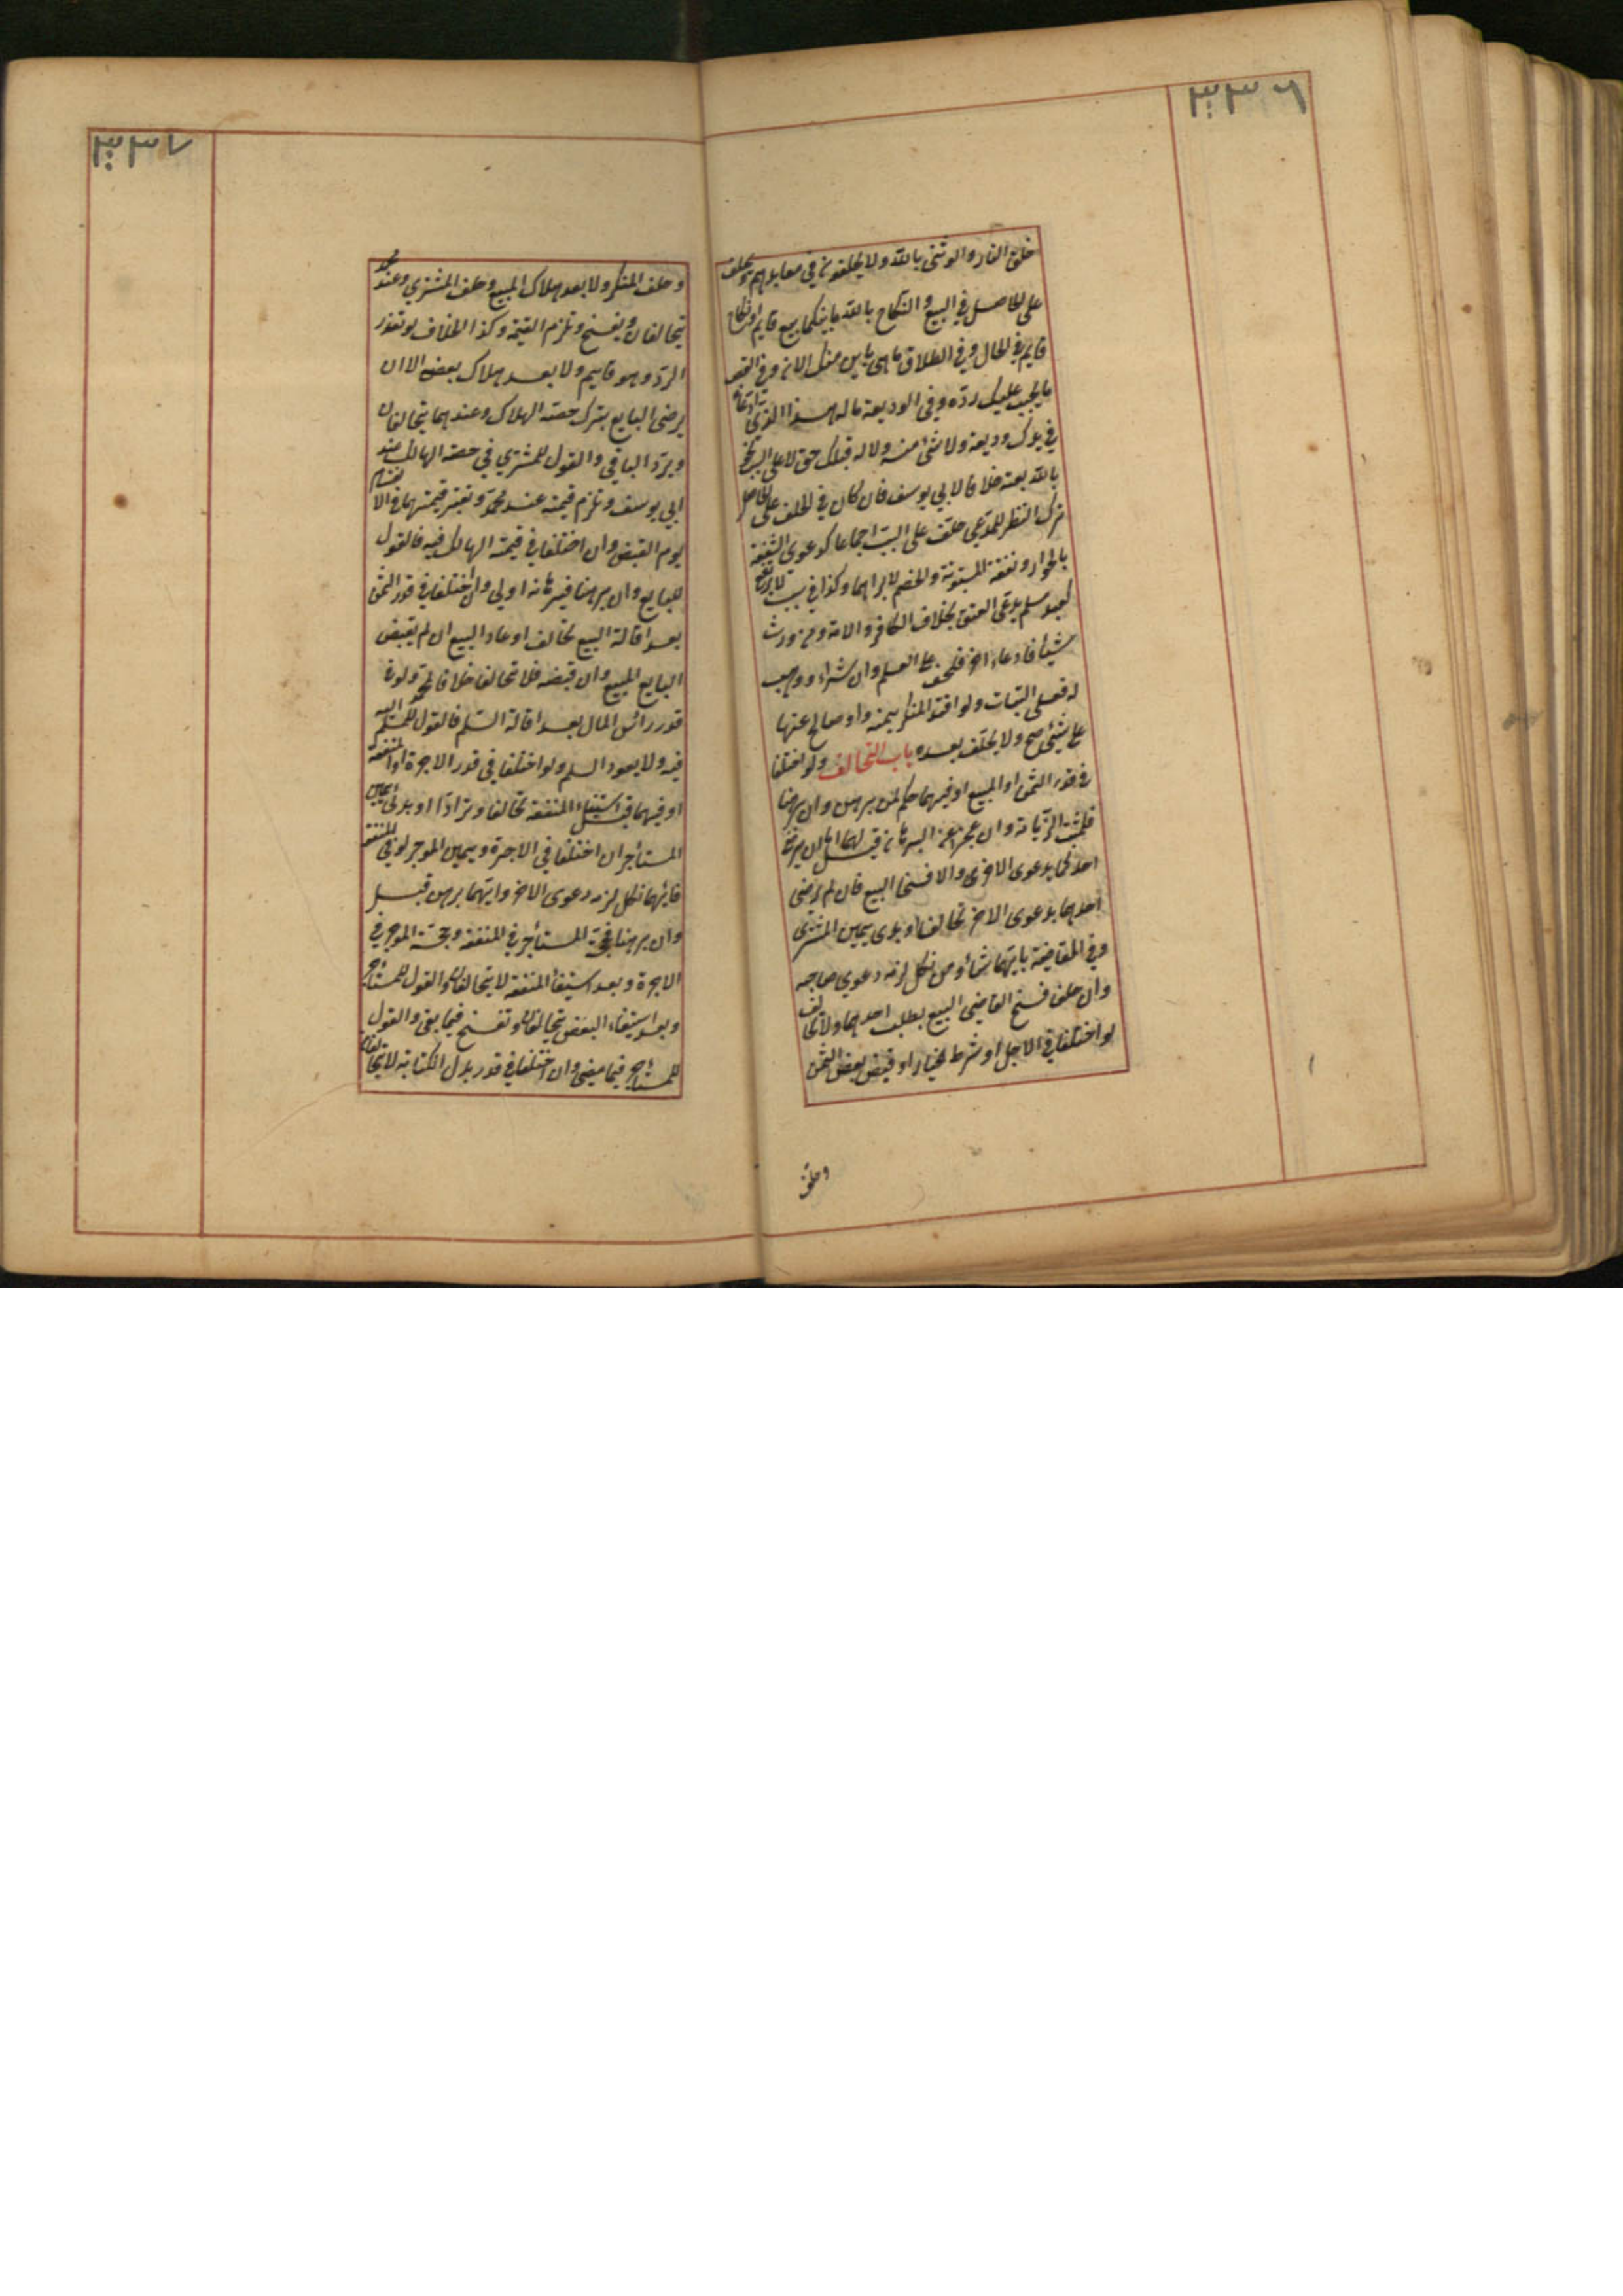 ٣٣٦
خلق النار والوثني بالله ولا يحلفون في معابدهم ويحلف
على الحاصل في البيع والنكاح بالله ما بينكما بيع قايم او نكاح
قايم في الحال وفي الطلاق ما هي باين منك الان وفي الغصب
ما يجب عليك رده وفي الوديعة ما له هذا الذي ادعاه
في يدك وديعة ولا شئ منه ولا له قبلك حق لا على السبب نحو
بالله بعته خلافا لابي يوسف فان كان في الحلف على الحاصل
ترك النظر للمدعي حلف على السبب اجماعا كدعوى الشفعة
بالجوار ونفقة المبتوتة والخصم لا يراهما وكذا في سبب لا يرتفع
كعبد مسلم يدعي العتق بخلاف الكافر والامة ومن ورث
شيئا فادعاه اخر فلحف على العلم وان شراه او وهب
له فعلى البتات ولو افتدا المنكر يمينه او صالح عنها
على شئ صح ولا يحلف بعده باب التحالف ولو اختلفا
في قدر الثمن او المبيع او فيهما حكم لمن برهن وان برهنا
فلمثبت الزيادة وان عجزا عن البرهان قيل لهما اما ان يرضى
احدكما بدعوى الاخرى والا فسخنا البيع فان لم يرضى
احدهما بدعوى الاخر تحالفا وبدى بيمين المشترى
وفي المقايضة بايهما شاء ومن نكل لزمه دعوي صاحبه
وان حلف فسخ القاضي البيع بطلب احدهما ولا تحالف
لو اختلفا في الاجل او شرط الخيار او قبض بعض الثمن
وحلف
٣٣٧
وحلف المنكر ولا بعد هلاك المبيع وحلف المشتري وعند محمد
يتحالفان ويفسخ وتلزم القيمة وكذا الخلاف لو تعذر
الرد وهو قايم ولا بعد هلاك بعضه الا ان
يرضى البايع بترك حصته الهلاك وعندهما يتحالفان
ويرد الباقي والقول للمشتري في حصته الهالك عند
ابي يوسف وتلزم قيمته عند محمد وتعتبر قيمتهما في الانقسام
يوم القبض وان اختلفا في قيمته الهالك فيه فالقول
للبايع وان برهنا فبرهانه اولى وان اختلفا في قدر الثمن
بعد اقالة البيع تحالفا وعاد البيع ان لم يقبض
البايع المبيع وان قبضه فلا تحالف خلافا لمحمد ولو في
قدر رائس المال بعد اقالة السلم فالقول للمسلم اليه
فيه ولا يعود السلم ولو اختلفا في قدر الاجرة او المنفعة
او فيهما قبل استيفاء المنفعة تحالفا وترادا وبدئ بيمين
المستأجر ان اختلفا في الاجرة وبيمين الموجر لو في المنفعة
فايهما نكل لزمه دعوى الاخر وايهما برهن قبل
وان برهنا فحجة المستأجر في المنفعة وحجة الموجر في
الاجرة وبعد استيفأ المنفعة لا يتحالفان والقول للمستأجر
وبعد استيفاء البعض يتحالفان وتفسخ فيما بقي والقول
للمستأجر فيما مضى وان اختلفا في قدر بدل الكتابة لا يتحالفان